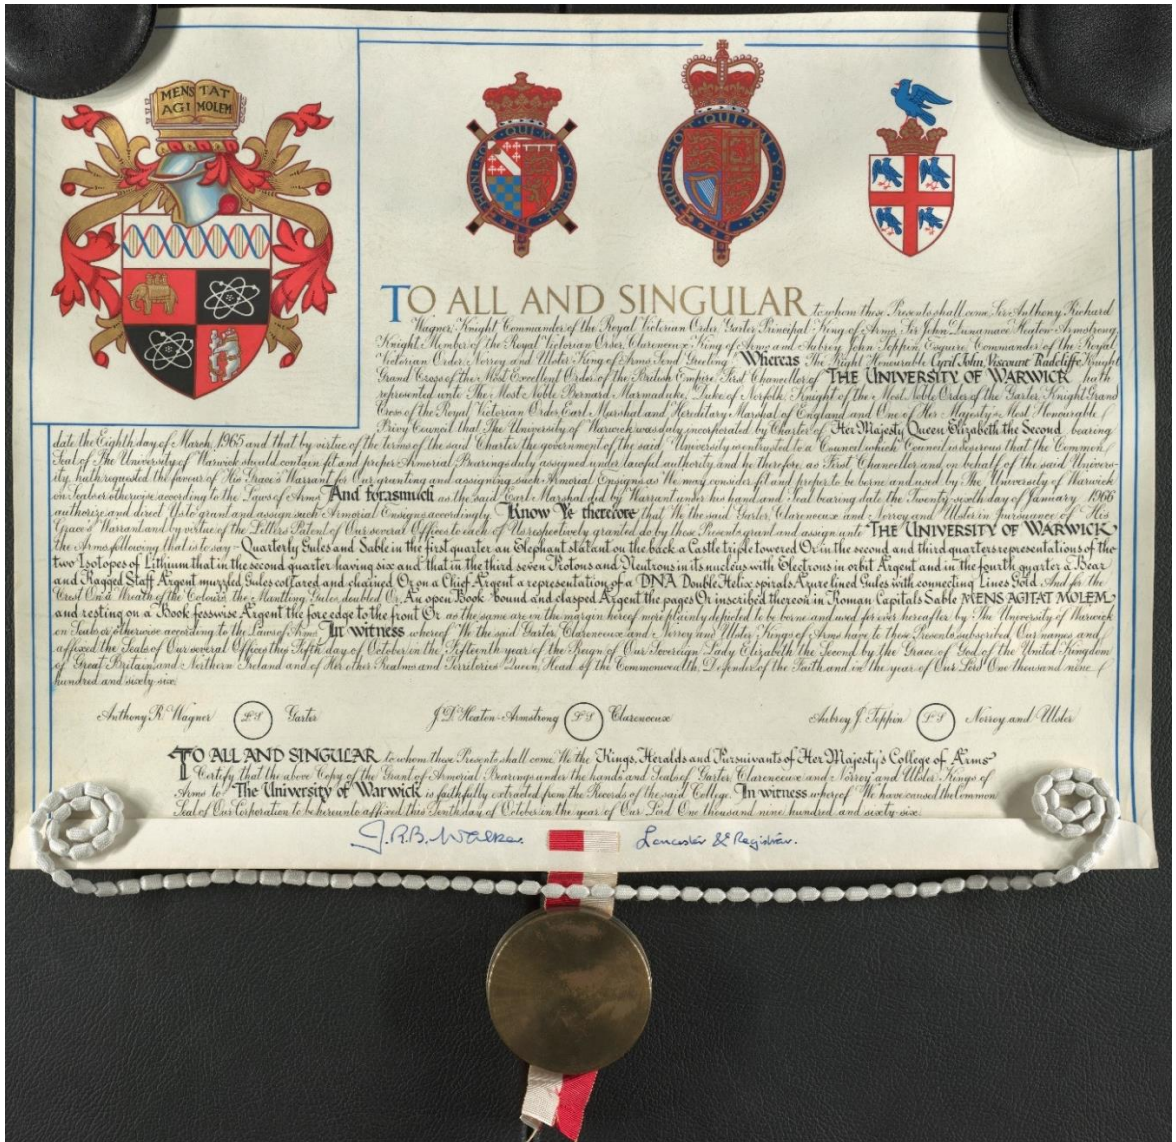 MENS TAT
AGI MOLEM
HONI SOIT QUI MAL Y PENSE
HONI SOIT QUI MAL Y PENSE
TO ALL AND SINGULAR to whom these Presents shall come Sir Anthony Richard
Wagner, Knight Commander of the Royal Victorian Order, Garter Principal King of Arms, Sir John Dunamace Heaton-Armstrong,
Knight Member of the Royal Victorian Order, Clarenceux King of Arms and Aubrey John Toppin, Esquire, Commander of the Royal
Victorian Order, Norroy and Ulster King of Arms Send Greeting Whereas The Right Honourable Cyril John, Viscount Radcliffe, Knight
Grand Cross of the Most Excellent Order of the British Empire, First Chancellor of THE UNIVERSITY OF WARWICK hath
represented unto The Most Noble Bernard Marmaduke, Duke of Norfolk, Knight of the Most Noble Order of the Garter, Knight Grand
Cross of the Royal Victorian Order, Earl Marshal and Hereditary Marshal of England and One of Her Majesty's Most Honourable
Privy Council that The University of Warwick was duly incorporated by Charter of Her Majesty Queen Elizabeth the Second bearing
date the Eighth day of March, 1965 and that by virtue of the terms of the said Charter the government of the said University is entrusted to a Council which Council is desirous that the Common
Seal of The University of Warwick should contain fit and proper Armorial Bearings duly assigned under lawful authority and he therefore, as First Chancellor and on behalf of the said Univers-
ity, hath requested the favour of His Grace's Warrant for Our granting and assigning such Armorial Ensigns as We may consider fit and proper to be borne and used by The University of Warwick
on Seals or otherwise according to the Laws of Arms And forasmuch as the said Earl Marshal did by Warrant under his hand and Seal bearing date the Twenty sixth day of January 1966
authorize and direct Us to grant and assign such Armorial Ensigns accordingly Know Ye therefore that We the said Garter, Clarenceux and Norroy and Ulster in pursuance of His
Grace's Warrant and by virtue of the Letters Patent of Our several Offices to each of Us respectively granted do by these Presents grant and assign unto THE UNIVERSITY OF WARWICK
the Arms following that is to say:- Quarterly Gules and Sable in the first quarter an Elephant statant on the back a Castle triple towered Or in the second and third quarters representations of the
two Isotopes of Lithium that in the second quarter having six and that in the third seven Protons and Neutrons in its nucleus with Electrons in orbit Argent and in the fourth quarter a Bear
and Ragged Staff Argent muzzled Gules collared and chained Or on a Chief Argent a representation of a DNA Double Helix spirals Azure lined Gules with connecting Lines Gold And for the
Crest On a Wreath of the Colours, the Mantling Gules doubled Or, An open Book bound and clasped Argent the pages Or inscribed thereon in Roman Capitals Sable MENS AGITAT MOLEM
and resting on a Book fesswise Argent the fore edge to the front Or as the same are in the margin hereof more plainly depicted to be borne and used for ever hereafter by The University of Warwick
on Seals or otherwise according to the Laws of Arms In witness whereof We the said Garter, Clarenceux and Norroy and Ulster Kings of Arms have to these Presents subscribed Our names and
affixed the Seals of Our several Offices this Fifth day of October in the Fifteenth year of the Reign of Our Sovereign Lady Elizabeth the Second by the Grace of God of the United Kingdom
of Great Britain and Northern Ireland and of Her other Realms and Territories Queen, Head of the Commonwealth, Defender of the Faith and in the year of Our Lord One thousand nine
hundred and sixty-six.
Anthony R. Wagner LS Garter J.D. Heaton-Armstrong LS Clarenceux Aubrey J. Toppin LS Norroy and Ulster
TO ALL AND SINGULAR to whom these Presents shall come We the Kings, Heralds and Pursuivants of Her Majesty's College of Arms
Certify that the above Copy of the Grant of Armorial Bearings under the hands and Seals of Garter, Clarenceux and Norroy and Ulster Kings of
Arms to The University of Warwick is faithfully extracted from the Records of the said College. In witness whereof We have caused the Common
Seal of Our Corporation to be hereunto affixed this Tenth day of October in the year of Our Lord One thousand nine hundred and sixty-six.
J.R.B. Walker. Lancaster & Registrar.